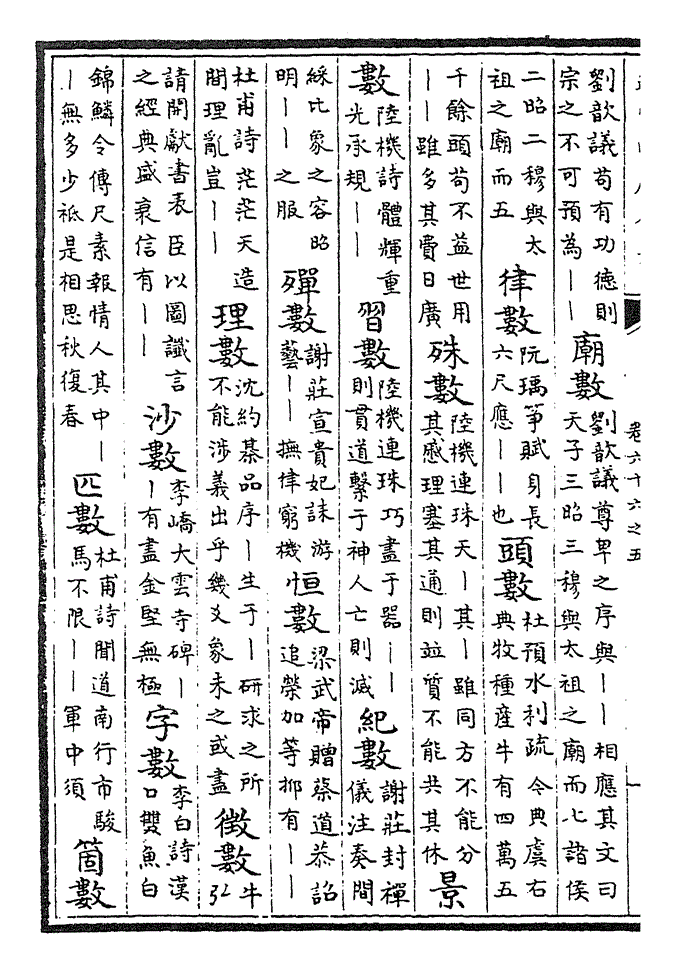 劉歆議苟有功德則
宗之不可預為——
廟數
劉歆議尊卑之序與——相應其文曰
天子三昭三穆與太祖之廟而七諸侯
二昭二穆與太
祖之廟而五
律數
阮瑀箏賦身長
六尺應——也
頭數
杜預水利疏令典虞右
典牧種産牛有四萬五
千餘頭苟不益世用
——雖多其費日廣
殊數
陸機連珠天—其—雖同方不能分
其慼理塞其通則並質不能共其休
景
數
陸機詩體輝重
光承規——
習數
陸機連珠巧盡于器——
則貫道繫于神人亡則滅
紀數
謝莊封禪
儀注奏間
綵比象之容昭
明——之服
殫數
謝莊宣貴妃誄游
藝——撫律窮機
恒數
梁武帝贈蔡道恭詔
追榮加等抑有——
杜甫詩茫茫天造
間理亂豈——
理數
沈約棊品序—生于—研求之所
不能涉義出乎幾爻象未之或盡
徵數
牛
弘
請開獻書表臣以圖讖言
之經典盛衰信有——
沙數
李嶠大雲寺碑—
—有盡金堅無極
字數
李白詩漢
口雙魚白
錦鱗令傳尺素報情人其中—
—無多少祗是相思秋復春
匹數
杜甫詩聞道南行市駿
馬不限——軍中須
箇數
卷六十六之五